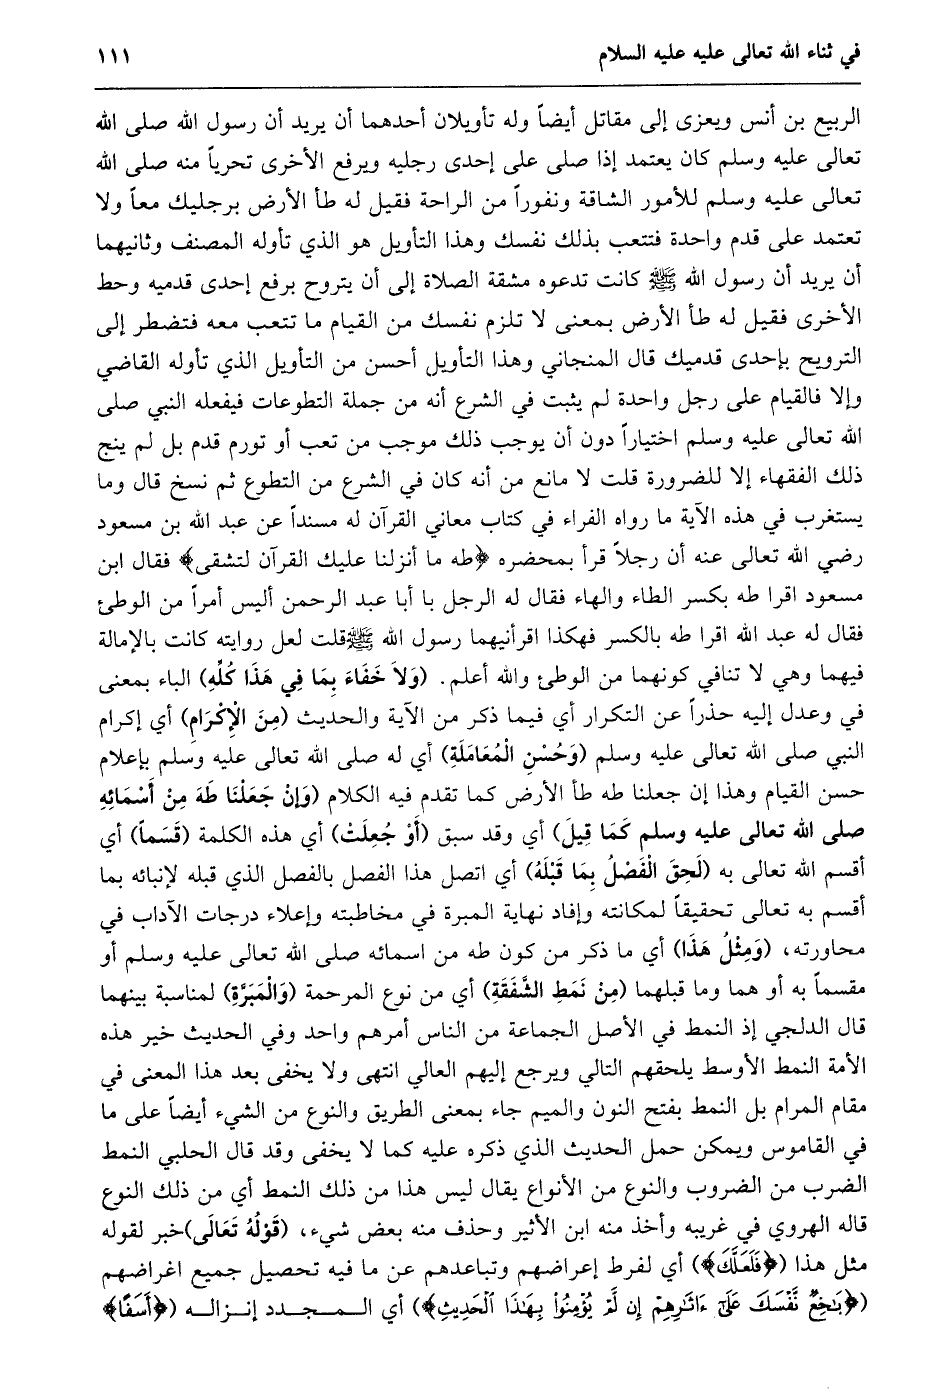 في ثناء الله تعالى عليه عليه السلام ١١١
الربيع بن أنس ويعزى إلى مقاتل أيضاً وله تأويلان أحدهما أن يريد أن رسول الله صلى الله
تعالى عليه وسلم كان يعتمد إذا صلى على إحدى رجليه ويرفع الأخرى تحرياً منه صلى الله
تعالى عليه وسلم للأمور الشاقة ونفوراً من الراحة فقيل له طأ الأرض برجليك معاً ولا
تعتمد على قدم واحدة فتتعب بذلك نفسك وهذا التأويل هو الذي تأوله المصنف وثانيهما
أن يريد أن رسول الله ﷺ كانت تدعوه مشقة الصلاة إلى أن يتروح برفع إحدى قدميه وحط
الأخرى فقيل له طأ الأرض بمعنى لا تلزم نفسك من القيام ما تتعب معه فتضطر إلى
الترويح بإحدى قدميك قال المنجاني وهذا التأويل أحسن من التأويل الذي تأوله القاضي
وإلا فالقيام على رجل واحدة لم يثبت في الشرع أنه من جملة التطوعات فيفعله النبي صلى
الله تعالى عليه وسلم اختياراً دون أن يوجب ذلك موجب من تعب أو تورم قدم بل لم ينج
ذلك الفقهاء إلا للضرورة قلت لا مانع من أنه كان في الشرع من التطوع ثم نسخ قال وما
يستغرب في هذه الآية ما رواه الفراء في كتاب معاني القرآن له مسنداً عن عبد الله بن مسعود
رضي الله تعالى عنه أن رجلاً قرأ بمحضره ﴿طه ما أنزلنا عليك القرآن لتشقى﴾ فقال ابن
مسعود اقرا طه بكسر الطاء والهاء فقال له الرجل با أبا عبد الرحمن أليس أمراً من الوطئ
فقال له عبد الله اقرا طه بالكسر فهكذا اقرأنيهما رسول الله ﷺقلت لعل روايته كانت بالإمالة
فيهما وهي لا تنافي كونهما من الوطئ والله أعلم. (وَلاَ خَفَاءَ بِمَا فِي هَذَا كُلِّهِ) الباء بمعنى
في وعدل إليه حذراً عن التكرار أي فيما ذكر من الآية والحديث (مِنَ الْإِكْرَامِ) أي إكرام
النبي صلى الله تعالى عليه وسلم (وَحُسْنِ الْمُعَامَلَةِ) أي له صلى الله تعالى عليه وسلم بإعلام
حسن القيام وهذا إن جعلنا طه طأ الأرض كما تقدم فيه الكلام (وَإِنْ جَعَلْنَا طَهَ مِنْ أَسْمَائِهِ
صلى الله تعالى عليه وسلم كَمَا قِيلَ) أي وقد سبق (أَوْ جُعِلَتْ) أي هذه الكلمة (قَسَماً) أي
أقسم الله تعالى به (لَحِقَ الْفَصْلُ بِمَا قَبْلَهُ) أي اتصل هذا الفصل بالفصل الذي قبله لإنبائه بما
أقسم به تعالى تحقيقاً لمكانته وإفاد نهاية المبرة في مخاطبته وإعلاء درجات الآداب في
محاورته، (وَمِثْلُ هَذَا) أي ما ذكر من كون طه من اسمائه صلى الله تعالى عليه وسلم أو
مقسماً به أو هما وما قبلهما (مِنْ نَمَطِ الشَّفَقَةِ) أي من نوع المرحمة (وَالْمَبَرَّةِ) لمناسبة بينهما
قال الدلجي إذ النمط في الأصل الجماعة من الناس أمرهم واحد وفي الحديث خير هذه
الأمة النمط الأوسط يلحقهم التالي ويرجع إليهم العالي انتهى ولا يخفى بعد هذا المعنى في
مقام المرام بل النمط بفتح النون والميم جاء بمعنى الطريق والنوع من الشيء أيضاً على ما
في القاموس ويمكن حمل الحديث الذي ذكره عليه كما لا يخفى وقد قال الحلبي النمط
الضرب من الضروب والنوع من الأنواع يقال ليس هذا من ذلك النمط أي من ذلك النوع
قاله الهروي في غريبه وأخذ منه ابن الأثير وحذف منه بعض شيء، (قَوْلُهُ تَعَالَى)خبر لقوله
مثل هذا (﴿فَلَعَلَّكَ﴾) أي لفرط إعراضهم وتباعدهم عن ما فيه تحصيل جميع اغراضهم
(﴿بَاخِعٌ نَّفْسَكَ عَلَىٰ ءَاثَارِهِمْ إِن لَّمْ يُؤْمِنُوا بِهَٰذَا الْحَدِيثِ﴾) أي المـجـدد إنـزالـه (﴿أَسَفًا﴾